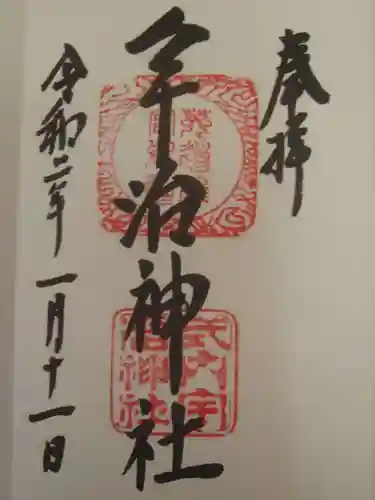 奉拝
宇治神社
式内宇
治神社
令和二年一月十一日